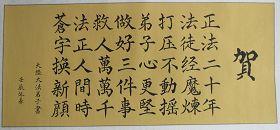 賀
正法二十年
法徒經魔煉
打压不動搖
弟子心更堅
做好三件事
救人萬萬千
法正人間時
蒼宇換新顏
大陸大法弟子書
壬辰